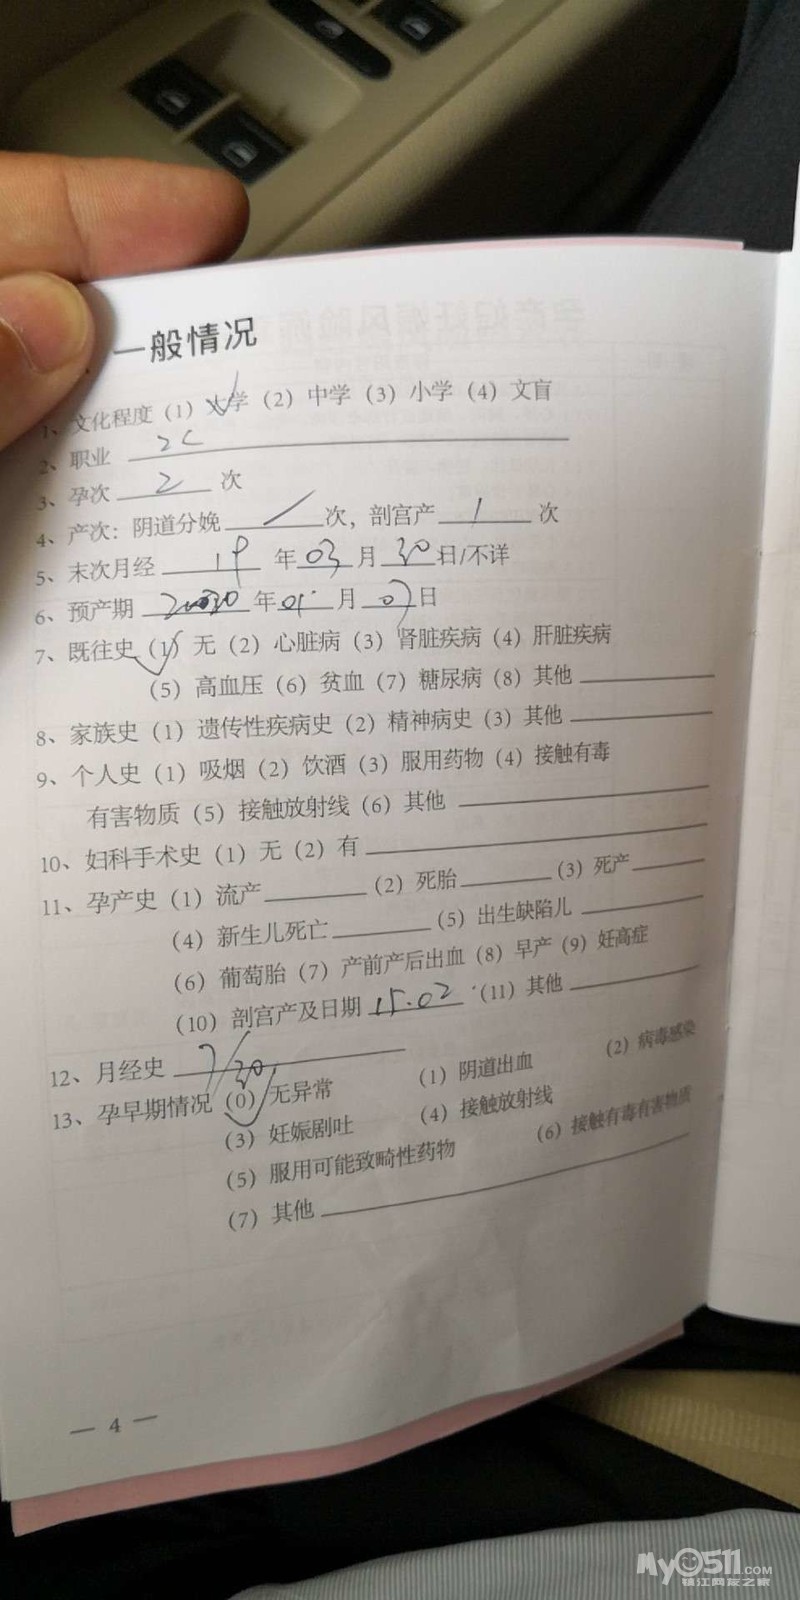 一般情况
1、文化程度（1）大学（2）中学（3）小学（4）文盲
2、职业
3、孕次 2 次
4、产次：阴道分娩 / 次，剖宫产 1 次
5、末次月经 19 年 03 月 30 日/不详
6、预产期 2020 年 01 月 07 日
7、既往史（1）无（2）心脏病（3）肾脏疾病（4）肝脏疾病
（5）高血压（6）贫血（7）糖尿病（8）其他
8、家族史（1）遗传性疾病史（2）精神病史（3）其他
9、个人史（1）吸烟（2）饮酒（3）服用药物（4）接触有毒
有害物质（5）接触放射线（6）其他
10、妇科手术史（1）无（2）有
11、孕产史（1）流产（2）死胎（3）死产
（4）新生儿死亡（5）出生缺陷儿
（6）葡萄胎（7）产前产后出血（8）早产（9）妊高症
（10）剖宫产及日期 15.02（11）其他
12、月经史 7/30
13、孕早期情况（0）无异常（1）阴道出血（2）病毒感染
（3）妊娠剧吐（4）接触放射线
（5）服用可能致畸性药物（6）接触有毒有害物质
（7）其他
— 4 —
My0511.COM
镇江网友之家